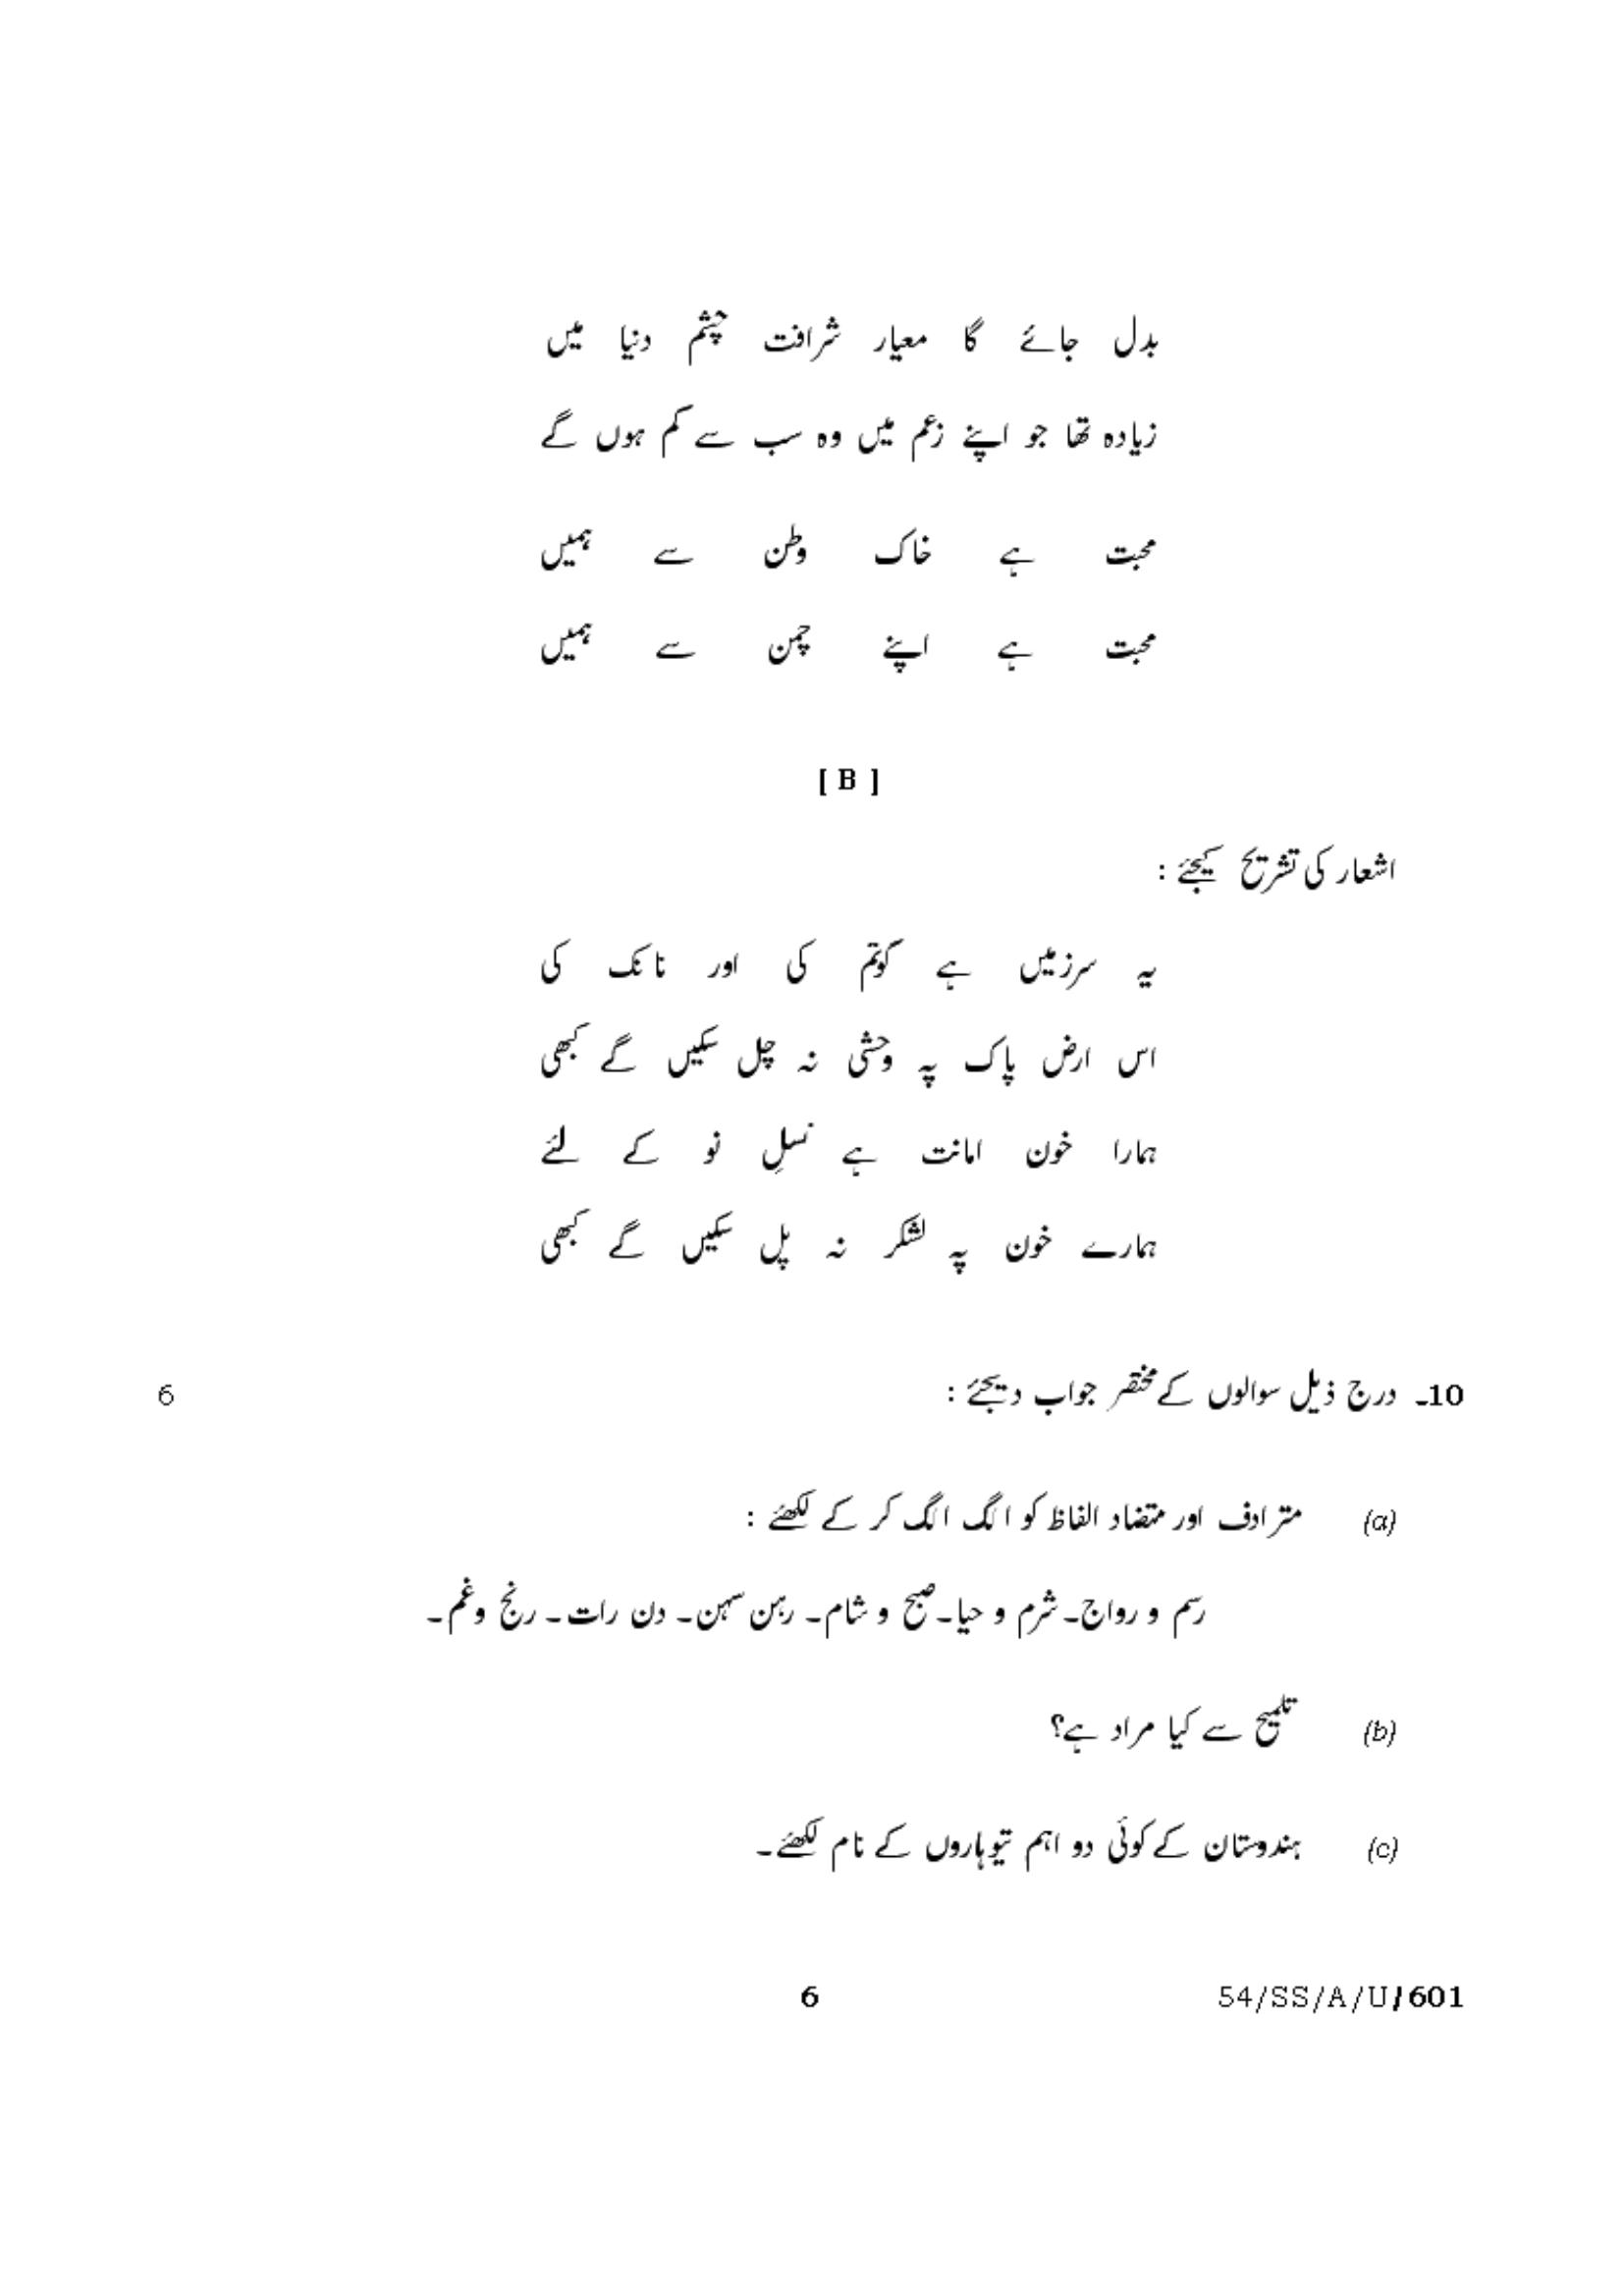 بدل جائے گا معیار شرافت چشم دنیا میں
زیادہ تھا جو اپنے زعم میں وہ سب سے کم ہوں گے
محبت ہے خاک وطن سے ہمیں
محبت ہے اپنے چمن سے ہمیں
[ B ]
اشعار کی تشریح کیجئے :
یہ سرزمیں ہے گوتم کی اور نانک کی
اس ارض پاک پہ وحشی نہ چل سکیں گے کبھی
ہمارا خون امانت ہے نسلِ نو کے لئے
ہمارے خون پہ لشکر نہ پل سکیں گے کبھی
10۔ درج ذیل سوالوں کے مختصر جواب دیجئے : 6
(a) مترادف اور متضاد الفاظ کو الگ الگ کر کے لکھئے :
رسم و رواج۔ شرم و حیا۔ صبح و شام۔ رہن سہن۔ دن رات۔ رنج و غم۔
(b) تلمیح سے کیا مراد ہے؟
(c) ہندوستان کے کوئی دو اہم تیوہاروں کے نام لکھئے۔
54/SS/A/U/601 6